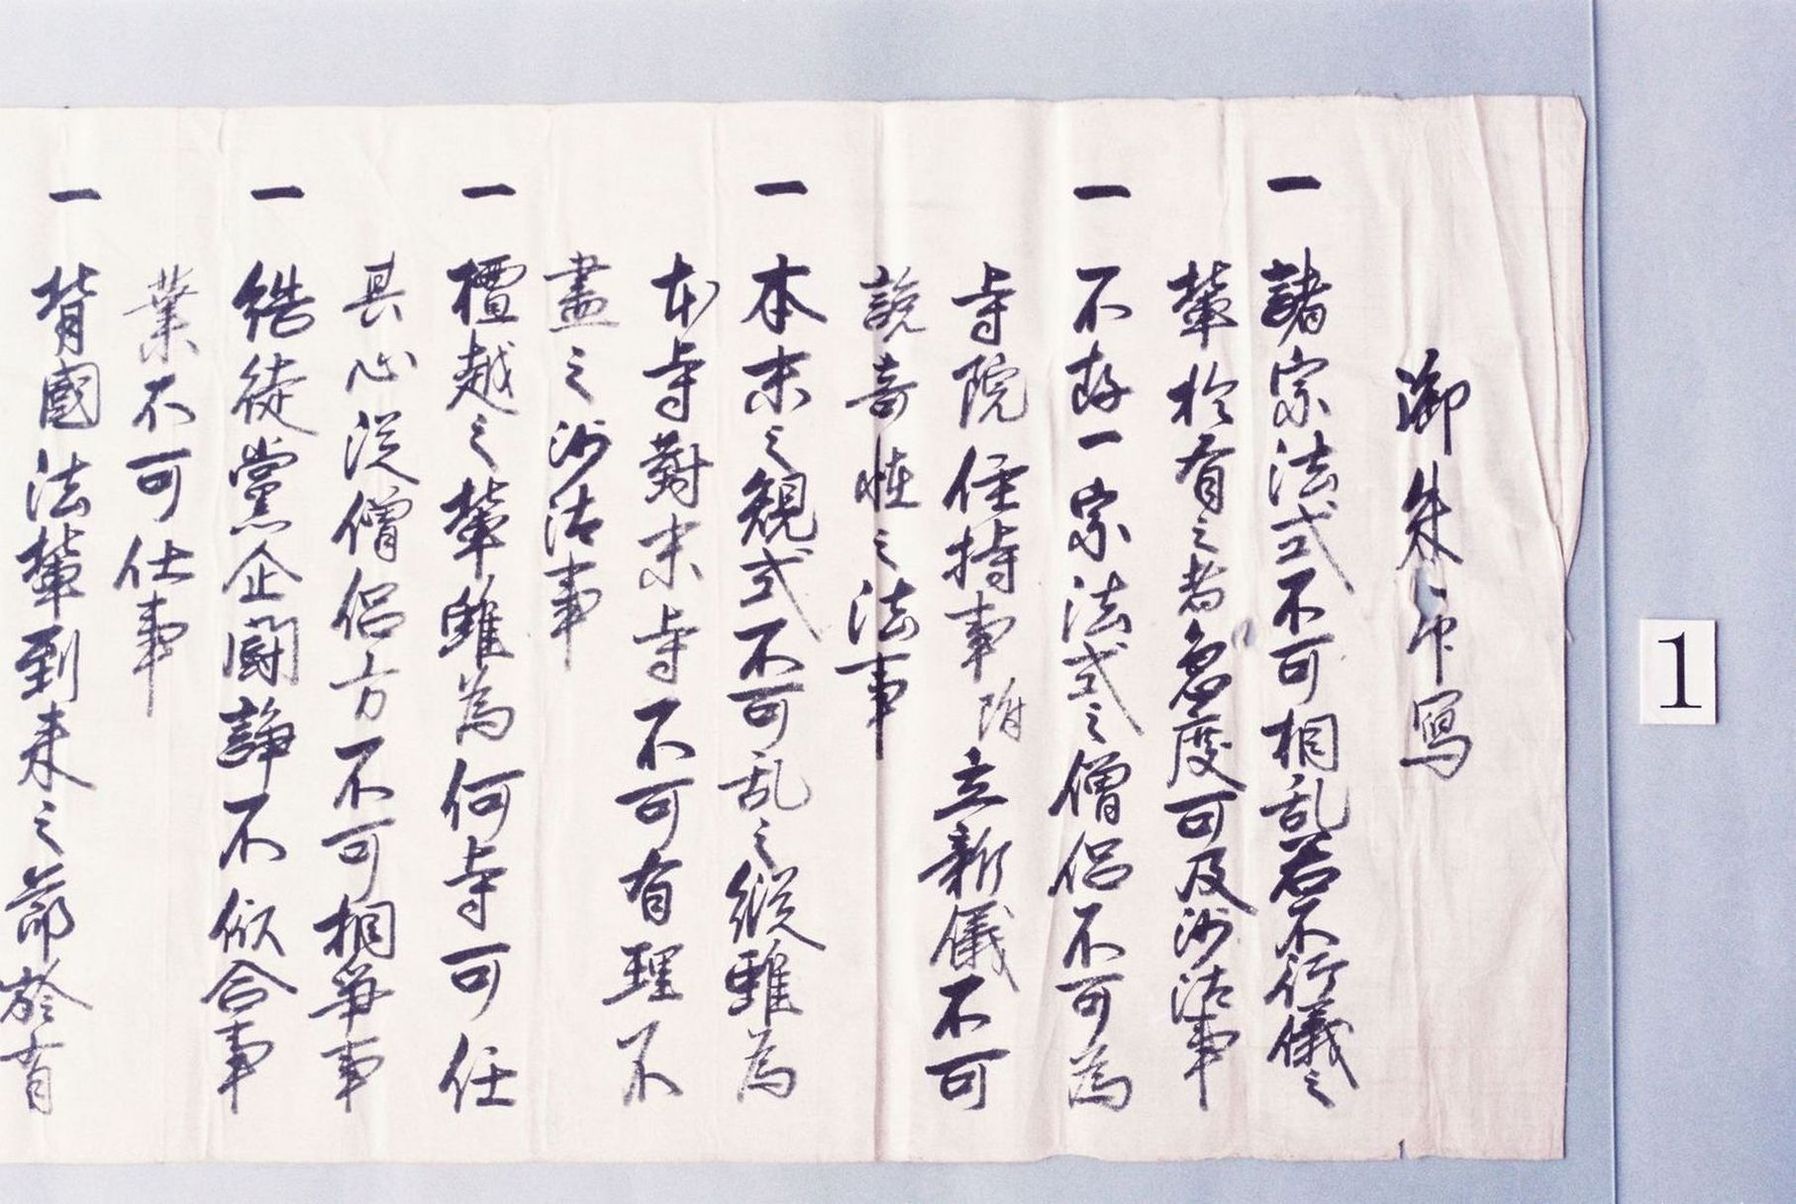 御朱印写
一 諸宗法式不可相乱若不行儀之
輩於有之者急度可及沙汰事
一 不存一宗法式之僧侶不可為
寺院住持事附立新儀不可
説奇怪之法事
一 本末之規式不可乱之縦雖為
本寺對末寺不可有理不
盡之沙汰事
一 檀越之輩雖為何寺可任
其心従僧侶方不可相争事
一 結徒黨企闘諍不似合事
業不可仕事
一 背國法輩到来之節於有
1